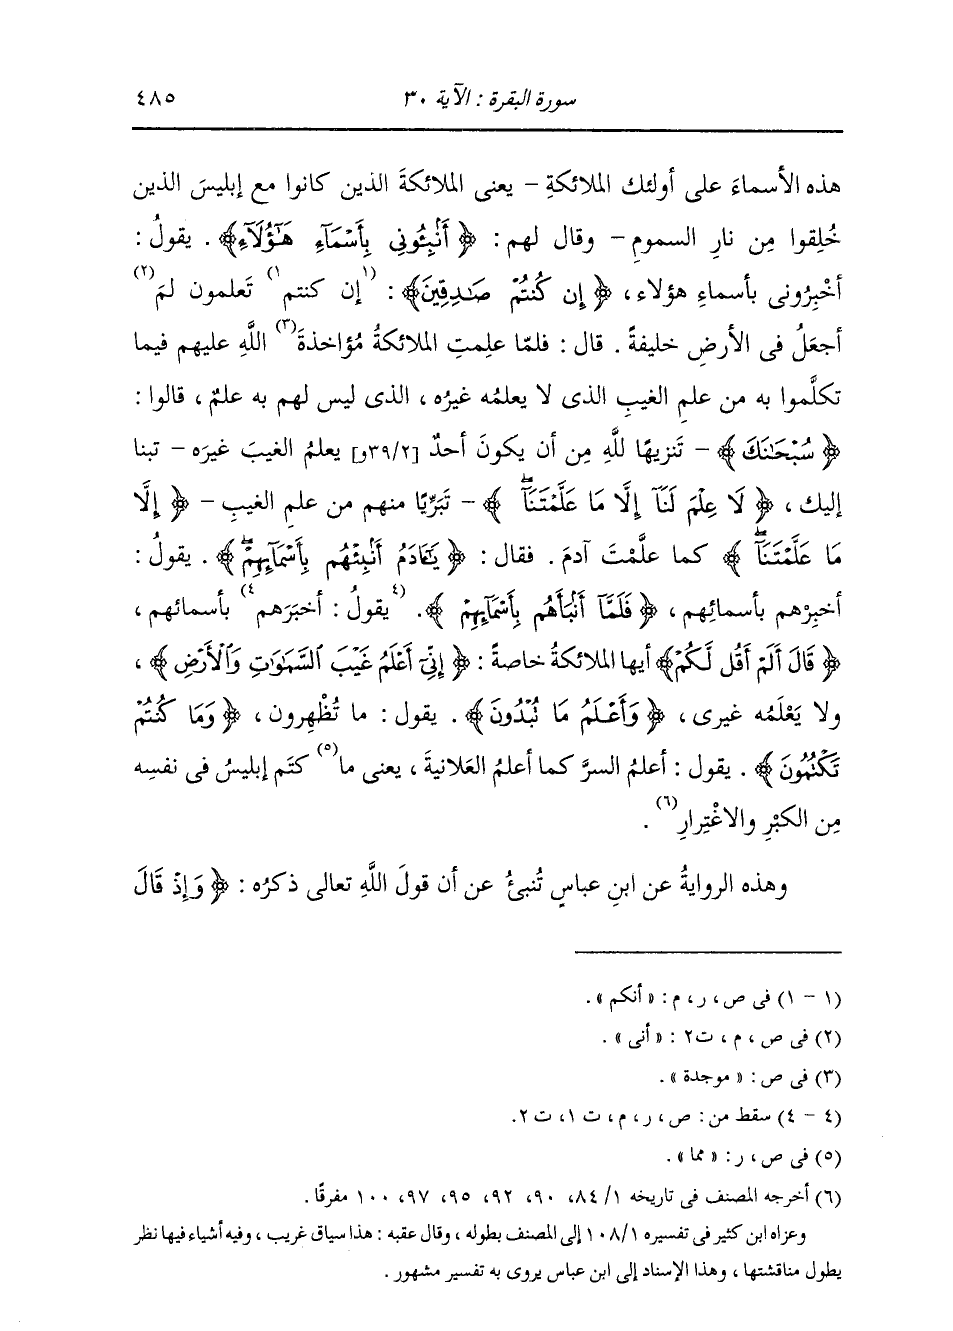 سورة البقرة : الآية ٣٠ ٤٨٥
هذه الأسماءَ على أولئك الملائكةِ – يعنى الملائكةَ الذين كانوا مع إبليسَ الذين
خُلِقوا مِن نارِ السمومِ – وقال لهم : ﴿ أَنۢبِـُٔونِي بِأَسۡمَآءِ هَـٰٓؤُلَآءِ ﴾ . يقولُ :
أخْبِرُونى بأسماءِ هؤلاء ، ﴿ إِن كُنتُمۡ صَـٰدِقِينَ ﴾ : (١) إن كنتم (١) تَعلمون لمَ (٢)
أجعَلُ فى الأرضِ خليفةً . قال : فلمّا علِمتِ الملائكةُ مُؤاخذةَ (٣) اللَّهِ عليهم فيما
تكلَّموا به من علمِ الغيبِ الذى لا يعلمُه غيرُه ، الذى ليس لهم به علمٌ ، قالوا :
﴿ سُبۡحَـٰنَكَ ﴾ – تَنزيهًا للَّهِ مِن أن يكونَ أحدٌ [٣٩/٢و] يعلمُ الغيبَ غيرَه – تبنا
إليك ، ﴿ لَا عِلۡمَ لَنَآ إِلَّا مَا عَلَّمۡتَنَآۖ ﴾ – تَبَرِّيًا منهم من علمِ الغيبِ – ﴿ إِلَّا
مَا عَلَّمۡتَنَآۖ ﴾ كما علَّمْتَ آدمَ . فقال : ﴿ يَـٰٓـَٔادَمُ أَنۢبِئۡهُم بِأَسۡمَآئِهِمۡۖ ﴾ . يقولُ :
أخبِرْهم بأسمائِهم ، ﴿ فَلَمَّآ أَنۢبَأَهُم بِأَسۡمَآئِهِمۡ ﴾ . (٤) يقولُ : أخبَرَهم (٤) بأسمائهم ،
﴿ قَالَ أَلَمۡ أَقُل لَّكُمۡ ﴾ أيها الملائكةُ خاصةً : ﴿ إِنِّيٓ أَعۡلَمُ غَيۡبَ ٱلسَّمَـٰوَٰتِ وَٱلۡأَرۡضِ ﴾ ،
ولا يَعْلَمُه غيرى ، ﴿ وَأَعۡلَمُ مَا تُبۡدُونَ ﴾ . يقول : ما تُظْهِرون ، ﴿ وَمَا كُنتُمۡ
تَكۡتُمُونَ ﴾ . يقول : أعلمُ السرَّ كما أعلمُ العَلانيةَ ، يعنى ما (٥) كتَم إبليسُ فى نفسِه
مِن الكبْرِ والاغْتِرارِ (٦) .
وهذه الروايةُ عن ابنِ عباسٍ تُنبئُ عن أن قولَ اللَّهِ تعالى ذكرُه : ﴿ وَإِذۡ قَالَ
(١ – ١) فى ص ، ر ، م : « أنكم » .
(٢) فى ص ، م ، ت٢ : « أنى » .
(٣) فى ص : « موجدة » .
(٤ – ٤) سقط من : ص ، ر ، م ، ت ١ ، ت ٢ .
(٥) فى ص ، ر : « مما » .
(٦) أخرجه المصنف فى تاريخه ١/ ٨٤، ٩٠، ٩٢، ٩٥، ٩٧، ١٠٠ مفرقًا .
وعزاه ابن كثير فى تفسيره ١٠٨/١ إلى المصنف بطوله ، وقال عقبه : هذا سياق غريب ، وفيه أشياء فيها نظر
يطول مناقشتها ، وهذا الإسناد إلى ابن عباس يروى به تفسير مشهور .